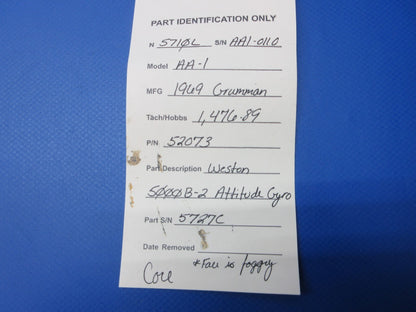 PART IDENTIFICATION ONLY
N 5710L S/N AA1-0110
Model AA-1
MFG 1969 Grumman
Tach/Hobbs 1,476.89
P/N 52073
Part Description Weston
5000B-2 Attitude Gyro
Part S/N 5727C
Date Removed
*Face is foggy
Core